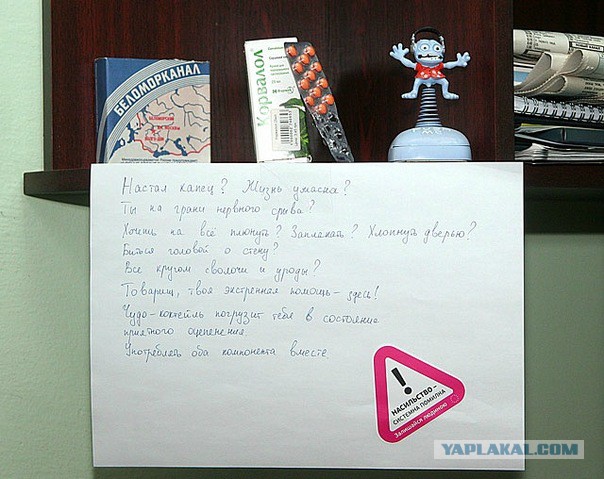 БЕЛОМОРКАНАЛ
Корвалол
Настал капец? Жизнь ужасна?
Ты на грани нервного срыва?
Хочешь на всё плюнуть? Заплакать? Хлопнуть дверью?
Биться головой о стену?
Все кругом сволочи и уроды?
Товарищ, твоя экстренная помощь - здесь!
Чудо-коктейль погрузит тебя в состояние
приятного оцепенения.
Употреблять оба компонента вместе
!
НАСИЛЬСТВО -
СИСТЕМНА ПОМИЛКА
Залишайся людиною
YAPLAKAL.COM